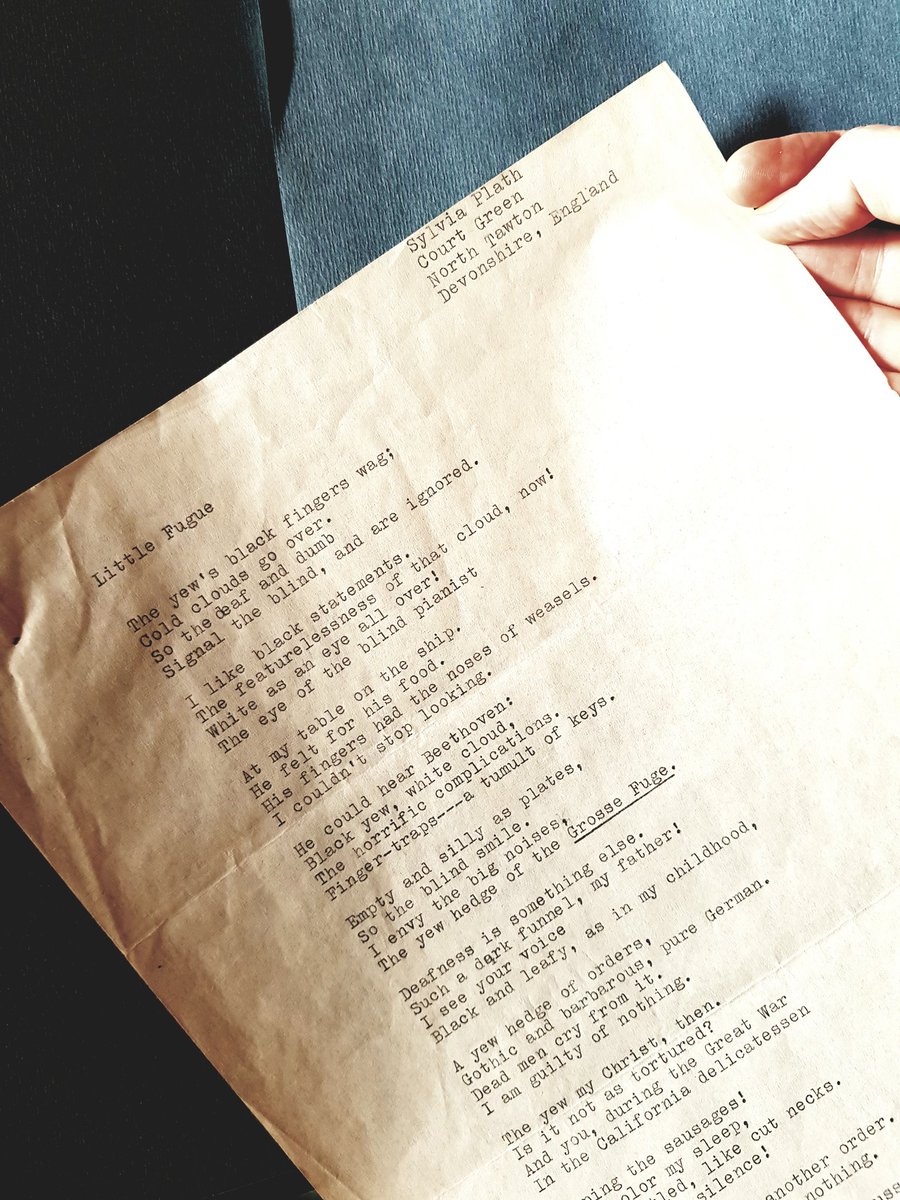 Sylvia Plath
Court Green
North Tawton
Devonshire, England
Little Fugue
The yew's black fingers wag;
Cold clouds go over.
So the deaf and dumb
Signal the blind, and are ignored.
I like black statements.
The featurelessness of that cloud, now!
White as an eye all over!
The eye of the blind pianist
At my table on the ship.
He felt for his food.
His fingers had the noses of weasels.
I couldn't stop looking.
He could hear Beethoven:
Black yew, white cloud,
The horrific complications.
Finger-traps---a tumult of keys.
Empty and silly as plates,
So the blind smile.
I envy the big noises,
The yew hedge of the Grosse Fuge.
Deafness is something else.
Such a dark funnel, my father!
I see your voice
Black and leafy, as in my childhood,
A yew hedge of orders,
Gothic and barbarous, pure German.
Dead men cry from it.
I am guilty of nothing.
The yew my Christ, then.
Is it not as tortured?
And you, during the Great War
In the California delicatessen
the sausages!
my sleep,
like cut necks.
silence!
another order.
nothing.